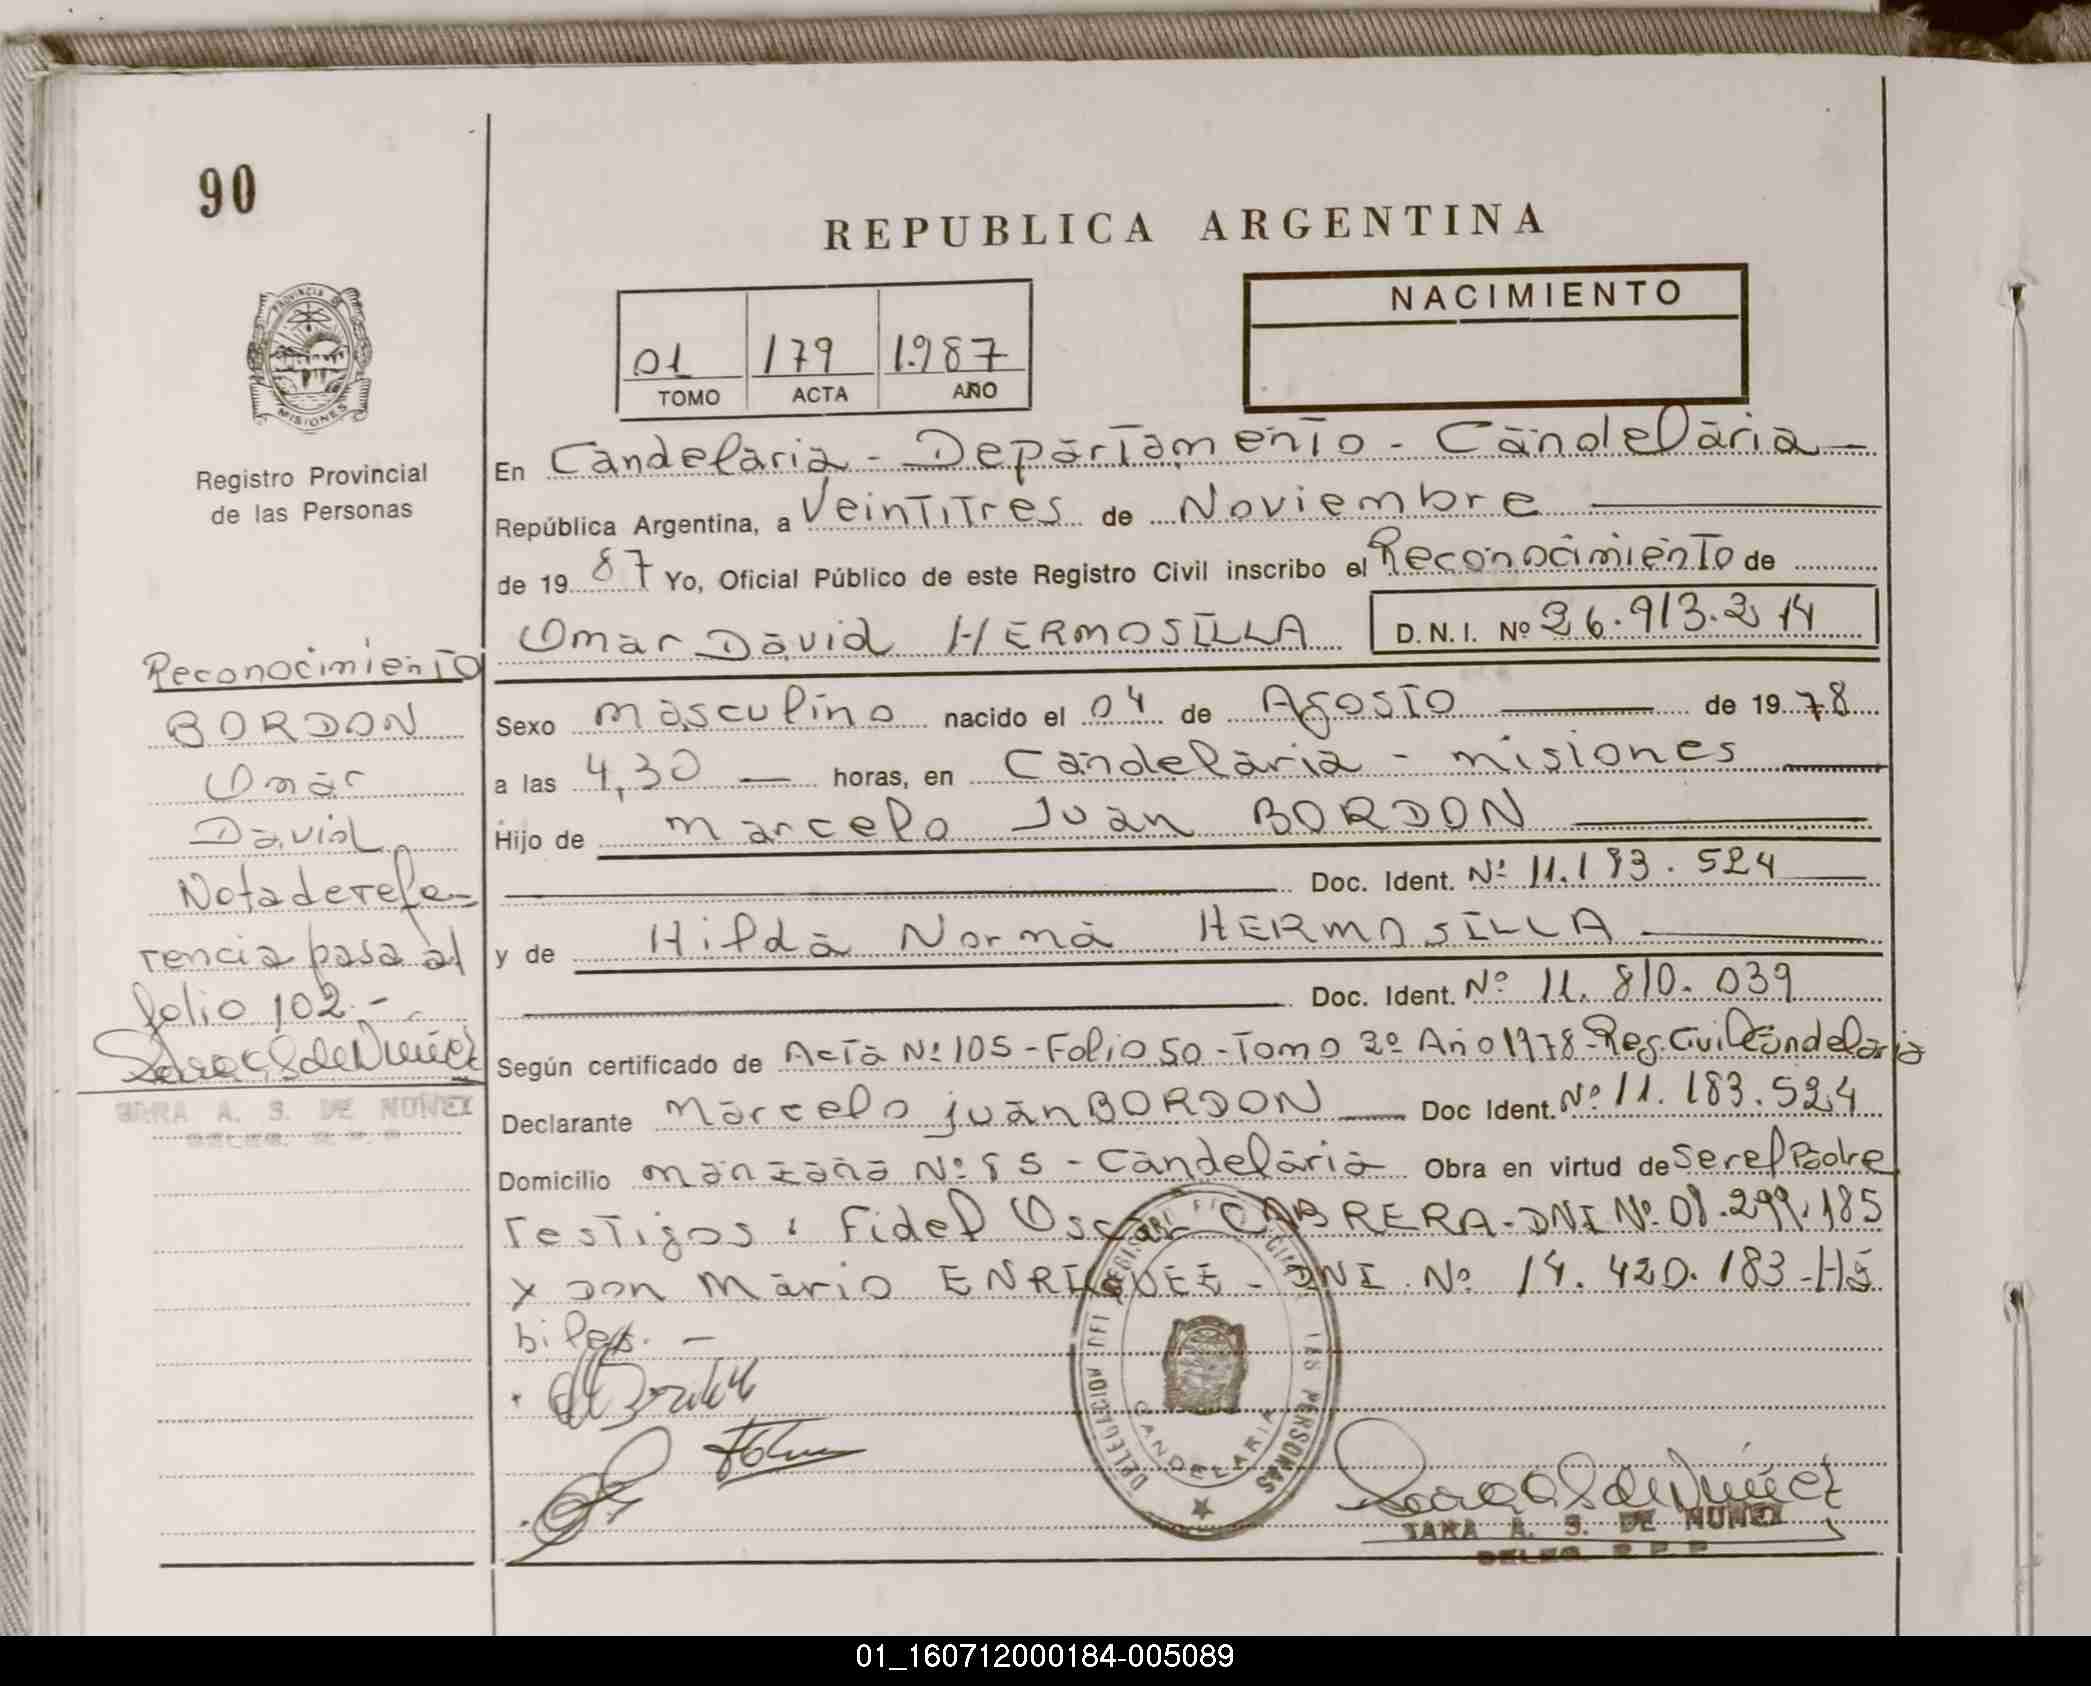 90
REPUBLICA ARGENTINA
NACIMIENTO
01 179 1.987
TOMO ACTA AÑO
PROVINCIA DE
MISIONES
Registro Provincial
de las Personas
En Candelaria - Departamento - Candelaria -
República Argentina, a Veintitres de Noviembre
de 19 87 Yo, Oficial Público de este Registro Civil inscribo el Reconocimiento de
Omar David HERMOSILLA D.N.I. Nº 26.913.214
Reconocimiento
BORDON
Omar
David
Nota de refe-
rencia pasa al
folio 102.-
SARA A. S. DE NUÑEZ
Sexo masculino nacido el 04 de Agosto de 19 78
a las 4,30 horas, en Candelaria - misiones
Hijo de Marcelo Juan BORDON
Doc. Ident. Nº 11.183.524
y de Hilda Norma HERMOSILLA
Doc. Ident. Nº 11.810.039
Según certificado de Acta Nº 105 - Folio 50 - Tomo 2º Año 1978 - Reg. Civil Candelaria
Declarante Marcelo juan BORDON Doc Ident. Nº 11.183.524
Domicilio manzana Nº 85 - Candelaria Obra en virtud de Ser el Padre
Testigos: Fidel Oscar CABRERA - DNI Nº 08.299.185
y don Mario ENRIQUEZ - DNI Nº 14.420.183 - Há
biles. -
DELEGACION DEL REGISTRO LAS PERSONAS
CANDELARIA
SARA A. S. DE NUÑEZ
DELEG. R. P. P.
01_160712000184-005089